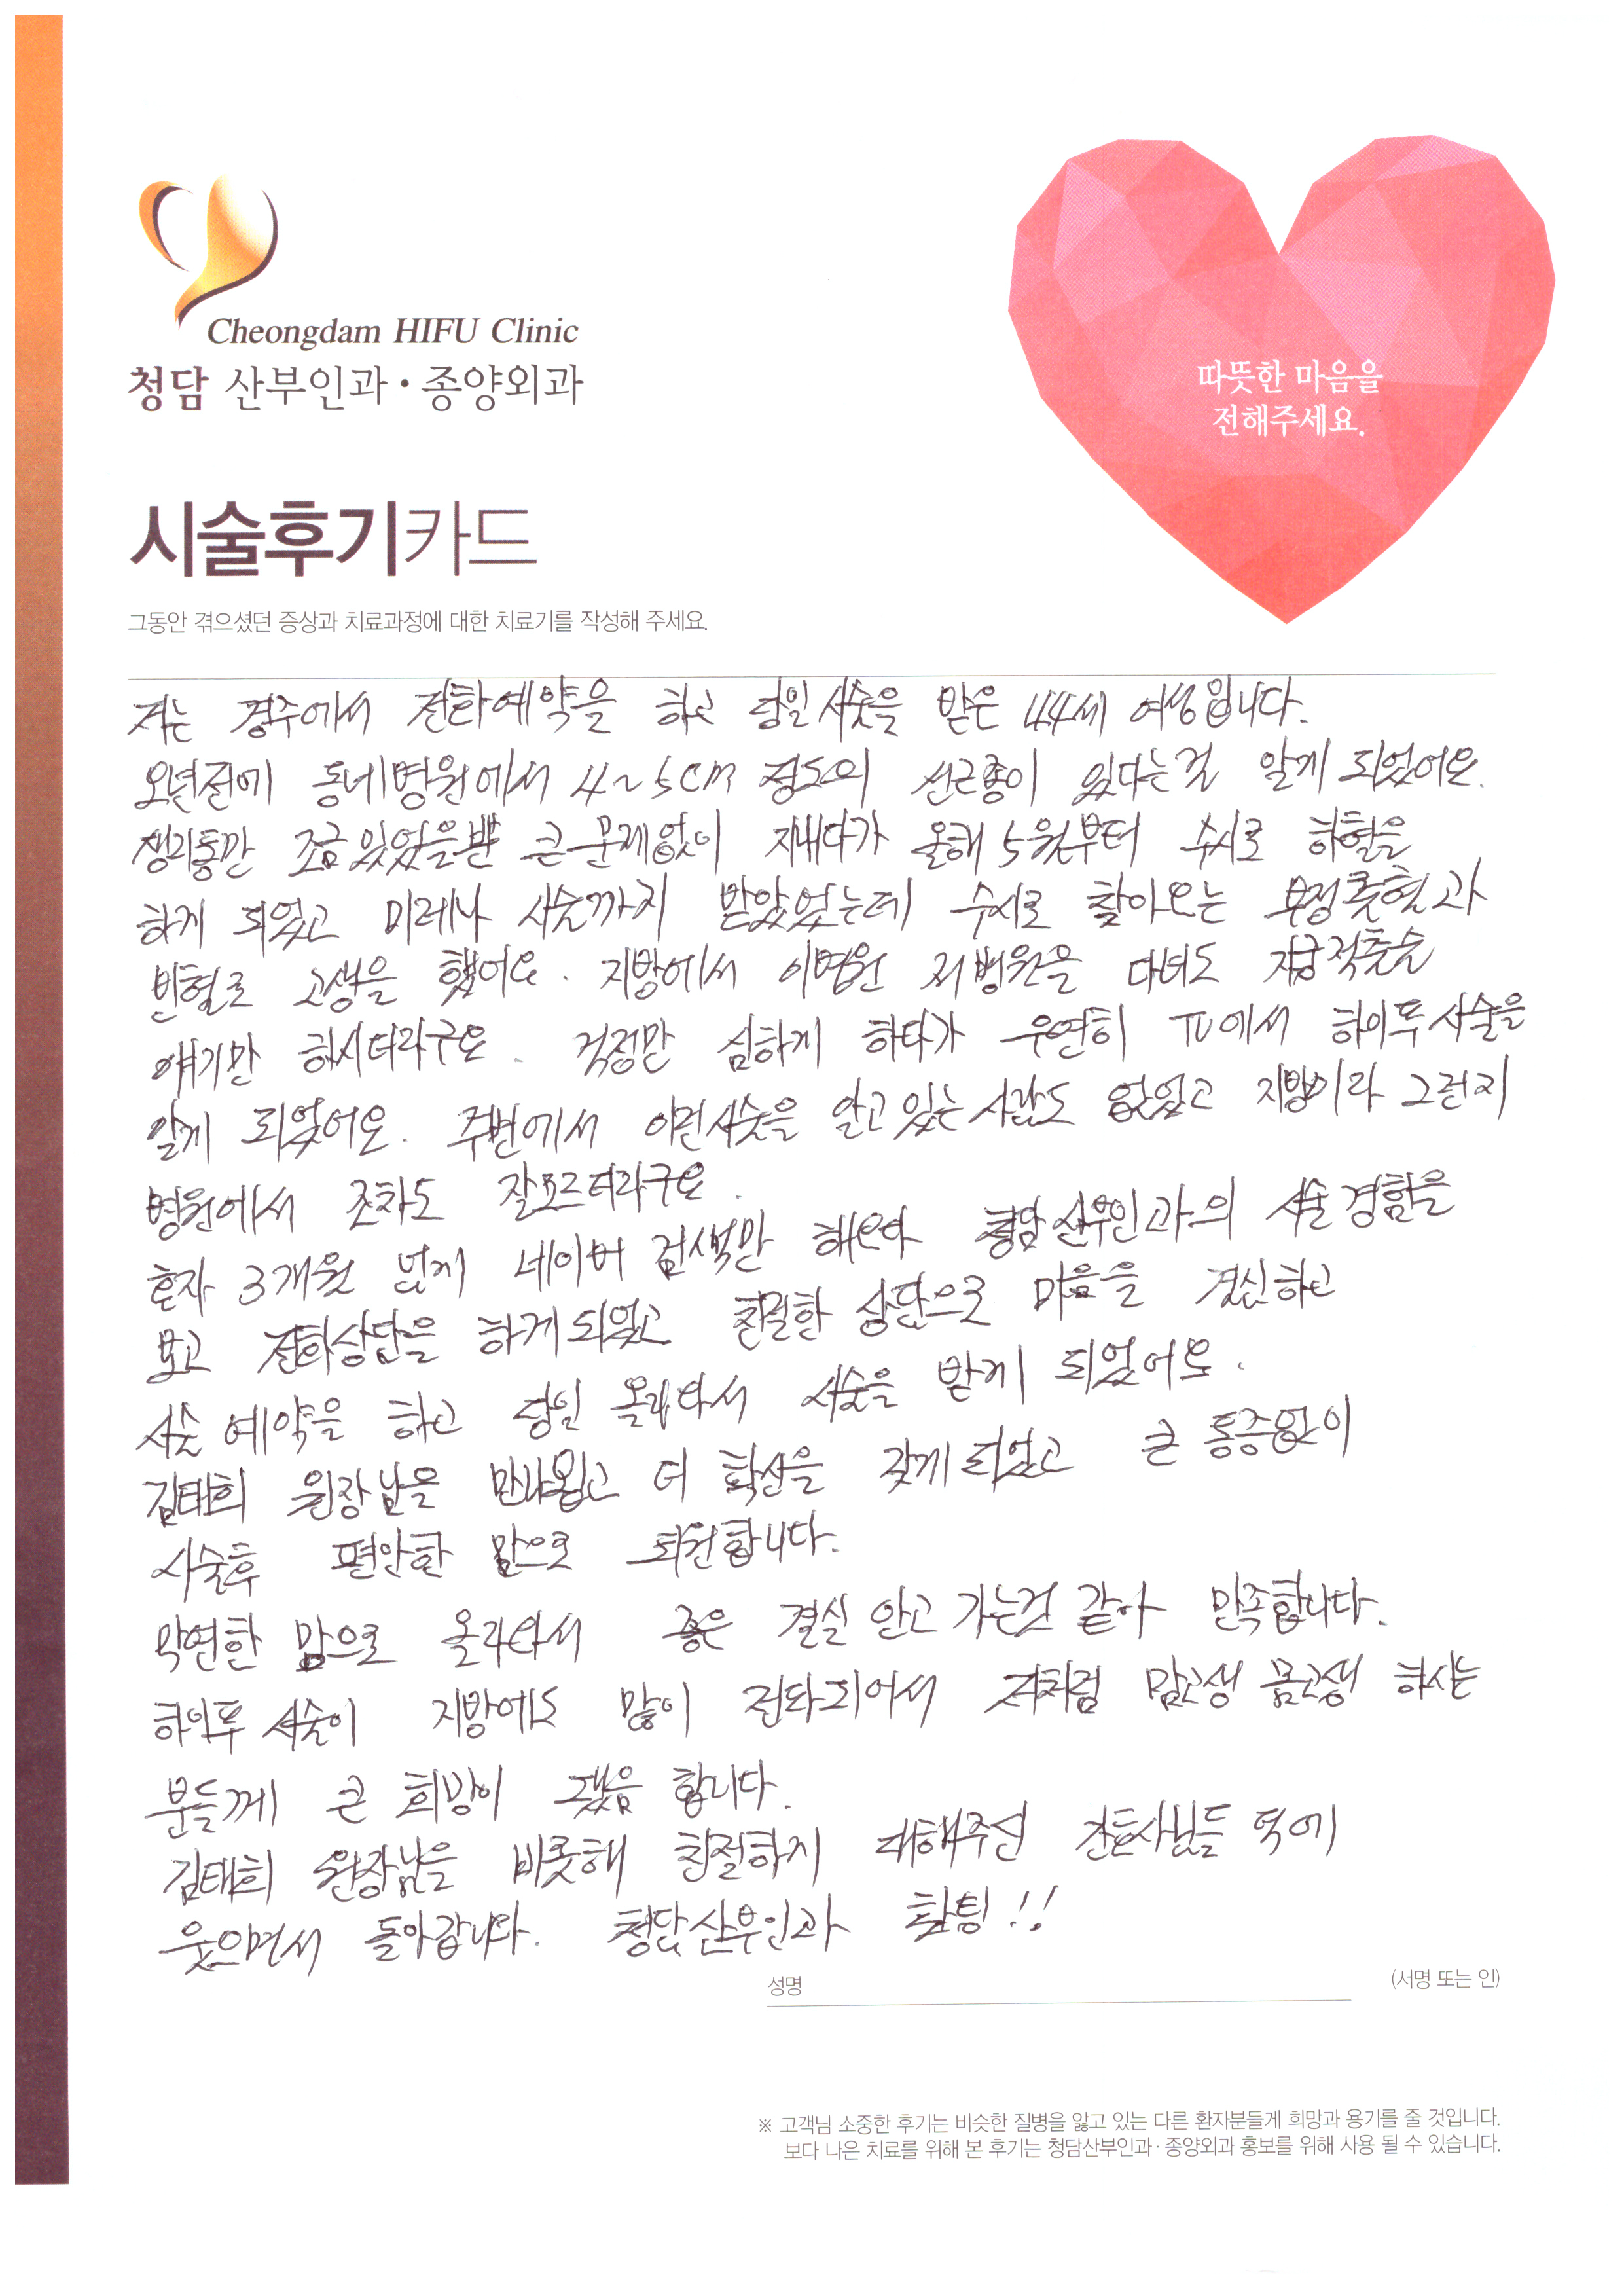 Cheongdam HIFU Clinic
청담 산부인과·종양외과
따뜻한 마음을
전해주세요.
시술후기카드
그동안 겪으셨던 증상과 치료과정에 대한 치료기를 작성해 주세요.
저는 경주에서 전화예약을 하고 당일시술을 받은 44세 여성입니다.
오년전에 동네병원에서 4~5cm 정도의 선근종이 있다는걸 알게 되었어요.
생리통만 조금 있었을뿐 큰 문제없이 지내다가 올해 5월부터 수시로 하혈을
하게 되었고 미레나 시술까지 받았었는데 수시로 찾아오는 부정출혈과
빈혈로 고생을 했어요. 지방에서 이병원 저병원을 다녀도 자궁적출술
얘기만 하시더라구요. 걱정만 심하게 하다가 우연히 TV에서 하이푸시술을
알게 되었어요. 주변에서 이런시술을 알고있는 사람도 없었고 지방이라 그런지
병원에서 조차도 잘모르더라구요.
혼자 3개월 넘게 네이버 검색만 해오다 청담산부인과의 시술경험을
보고 전화상담을 하게되었고 친절한 상담으로 마음을 결심하고
시술 예약을 하고 당일 올라와서 시술을 받게 되었어요.
김태희 원장님을 만나뵙고 더 확신을 갖게되었고 큰 통증없이
시술후 편안한 맘으로 퇴원합니다.
막연한 맘으로 올라와서 좋은 결실 안고 가는것 같아 만족합니다.
하이푸 시술이 지방에도 많이 전파되어서 저처럼 맘고생 몸고생 하시는
분들께 큰 희망이 됐음 합니다.
김태희 원장님을 비롯해 친절하게 대해주신 간호사님들 덕에
웃으면서 돌아갑니다. 청담산부인과 화팅!!
성명 (서명 또는 인)
※ 고객님 소중한 후기는 비슷한 질병을 앓고 있는 다른 환자분들게 희망과 용기를 줄 것입니다.
보다 나은 치료를 위해 본 후기는 청담산부인과·종양외과 홍보를 위해 사용 될 수 있습니다.